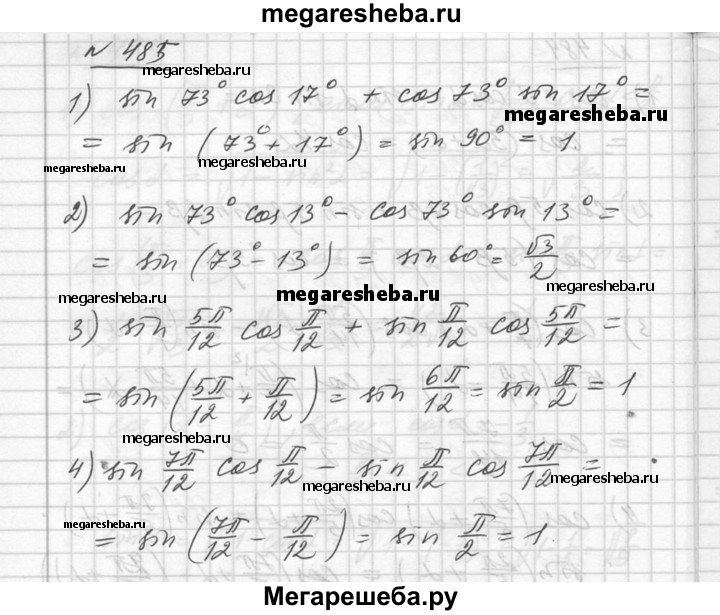 megaresheba.ru
№ 485
megaresheba.ru
1) sin 73° cos 17° + cos 73° sin 17° =
megaresheba.ru
= sin (73° + 17°) = sin 90° = 1.
megaresheba.ru megaresheba.ru megaresheba.ru
2) sin 73° cos 13° - cos 73° sin 13° =
= sin (73° - 13°) = sin 60° = √3/2
megaresheba.ru megaresheba.ru
3) sin 5π/12 cos π/12 + sin π/12 cos 5π/12 =
= sin (5π/12 + π/12) = sin 6π/12 = sin π/2 = 1
megaresheba.ru
4) sin 7π/12 cos π/12 - sin π/12 cos 7π/12 =
megaresheba.ru megaresheba.ru
= sin (7π/12 - π/12) = sin π/2 = 1.
megaresheba.ru
Мегарешеба.ру